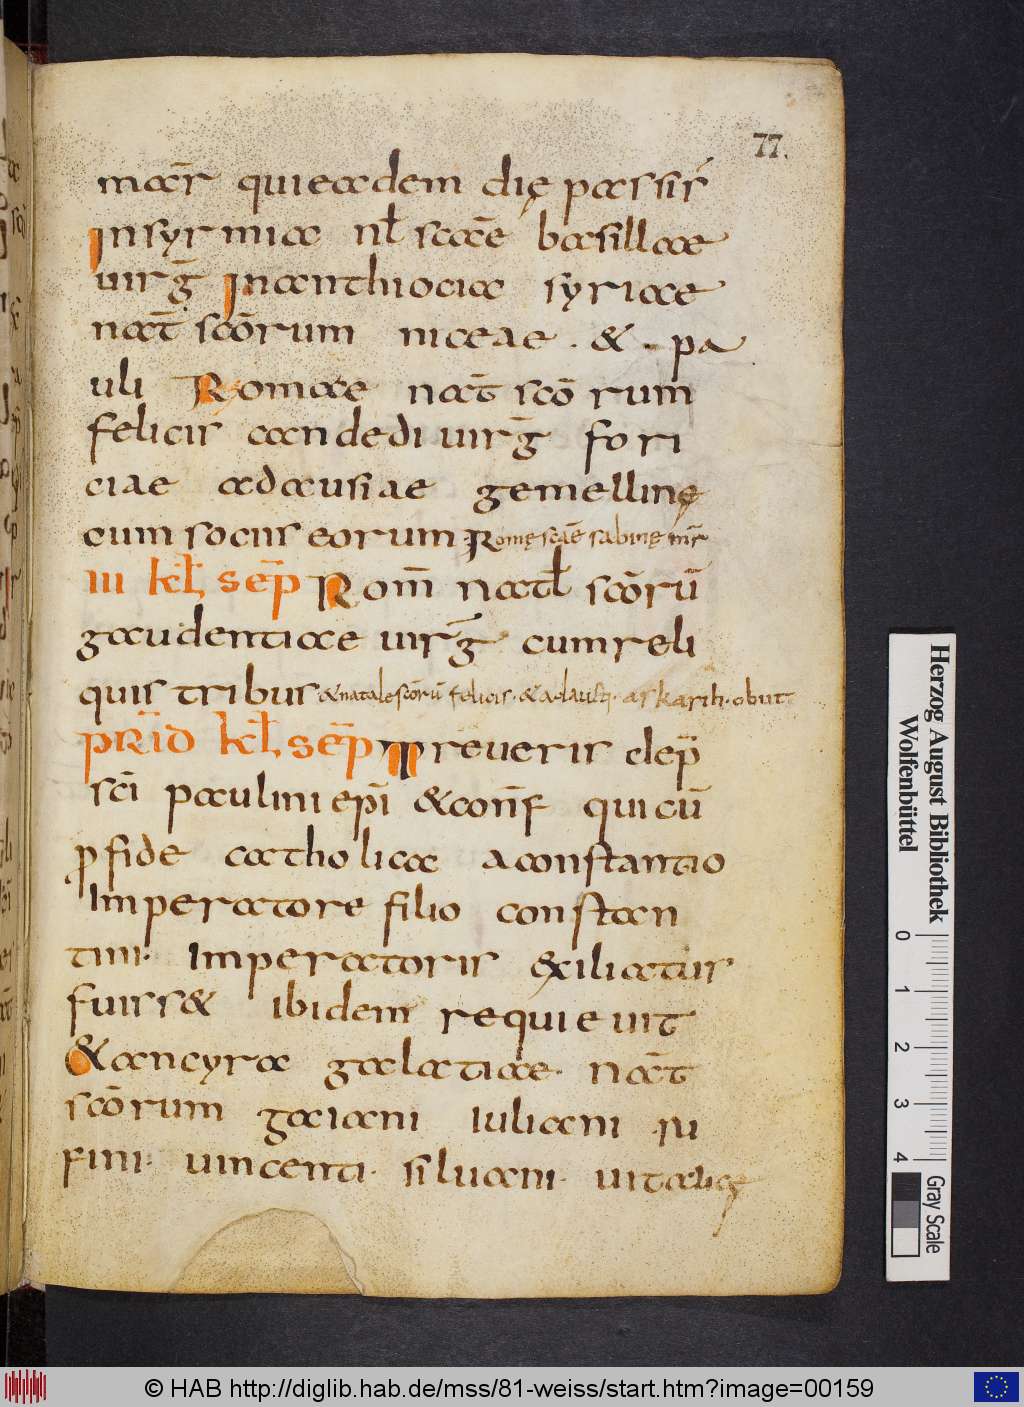 77.
mar̄ qui eadem die passis
In syrmia nt̄ scāe basillae
uirḡ In anthiocia syriae
nat̄ scōrum niceae . & . pa
uli Romae nat̄ scōrum
felicis candedi uirḡ fori
ciae adausiae gemellinę
cum sociis eorum Romę scāe sabinę mr̄
III kl̄ sep̄ Rom̄ natl̄ scōrū
gaudentiae uirḡ cum reli
quis tribus & natale scōrū felicis . & adausti . askarih . obiit
prid̄ kl̄ sep̄ Treueris dep̄
sc̄i paulini epī & conf̄ qui cū
ꝓ fide catholica a constantio
Imperatore filio constan
tini . Imperatoris exiliatus
fuiss& ibidem requieuit
& ancyra galatiae . nat̄
scōrum gaiani Iuliani ru
fini . uincenti . siluani . uitalicę
Herzog August Bibliothek
Wolfenbüttel
0 1 2 3 4
Gray Scale
© HAB http://diglib.hab.de/mss/81-weiss/start.htm?image=00159